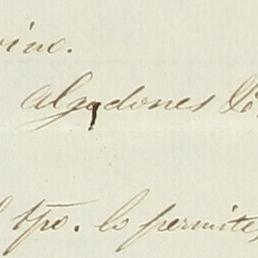 vino.
algodones &c.
l tpo. lo permite,